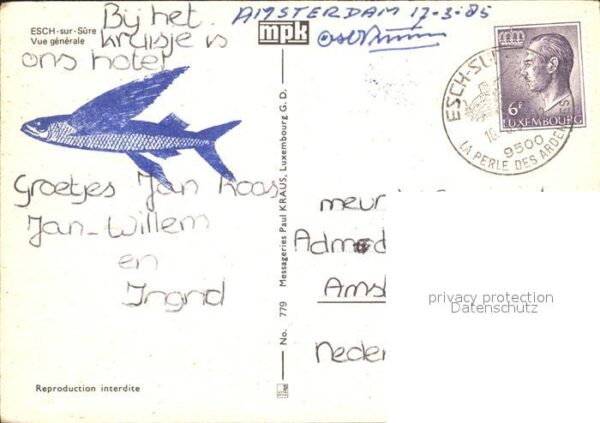 ESCH-sur-Sûre
Vue générale
Bij het
kruisje is
ons hotel
AMSTERDAM 17-3-85
mpk
ESCH-SU
LA PERLE DES ARDE ES
9500
6F
LUXEMBOURG
Groetjes Jan Koos
Jan-Willem
en
Ingrid
No. 779 Messageries Paul KRAUS, Luxembourg G.D.
meur
Adm
Ams
Neder
privacy protection
Datenschutz
Reproduction interdite